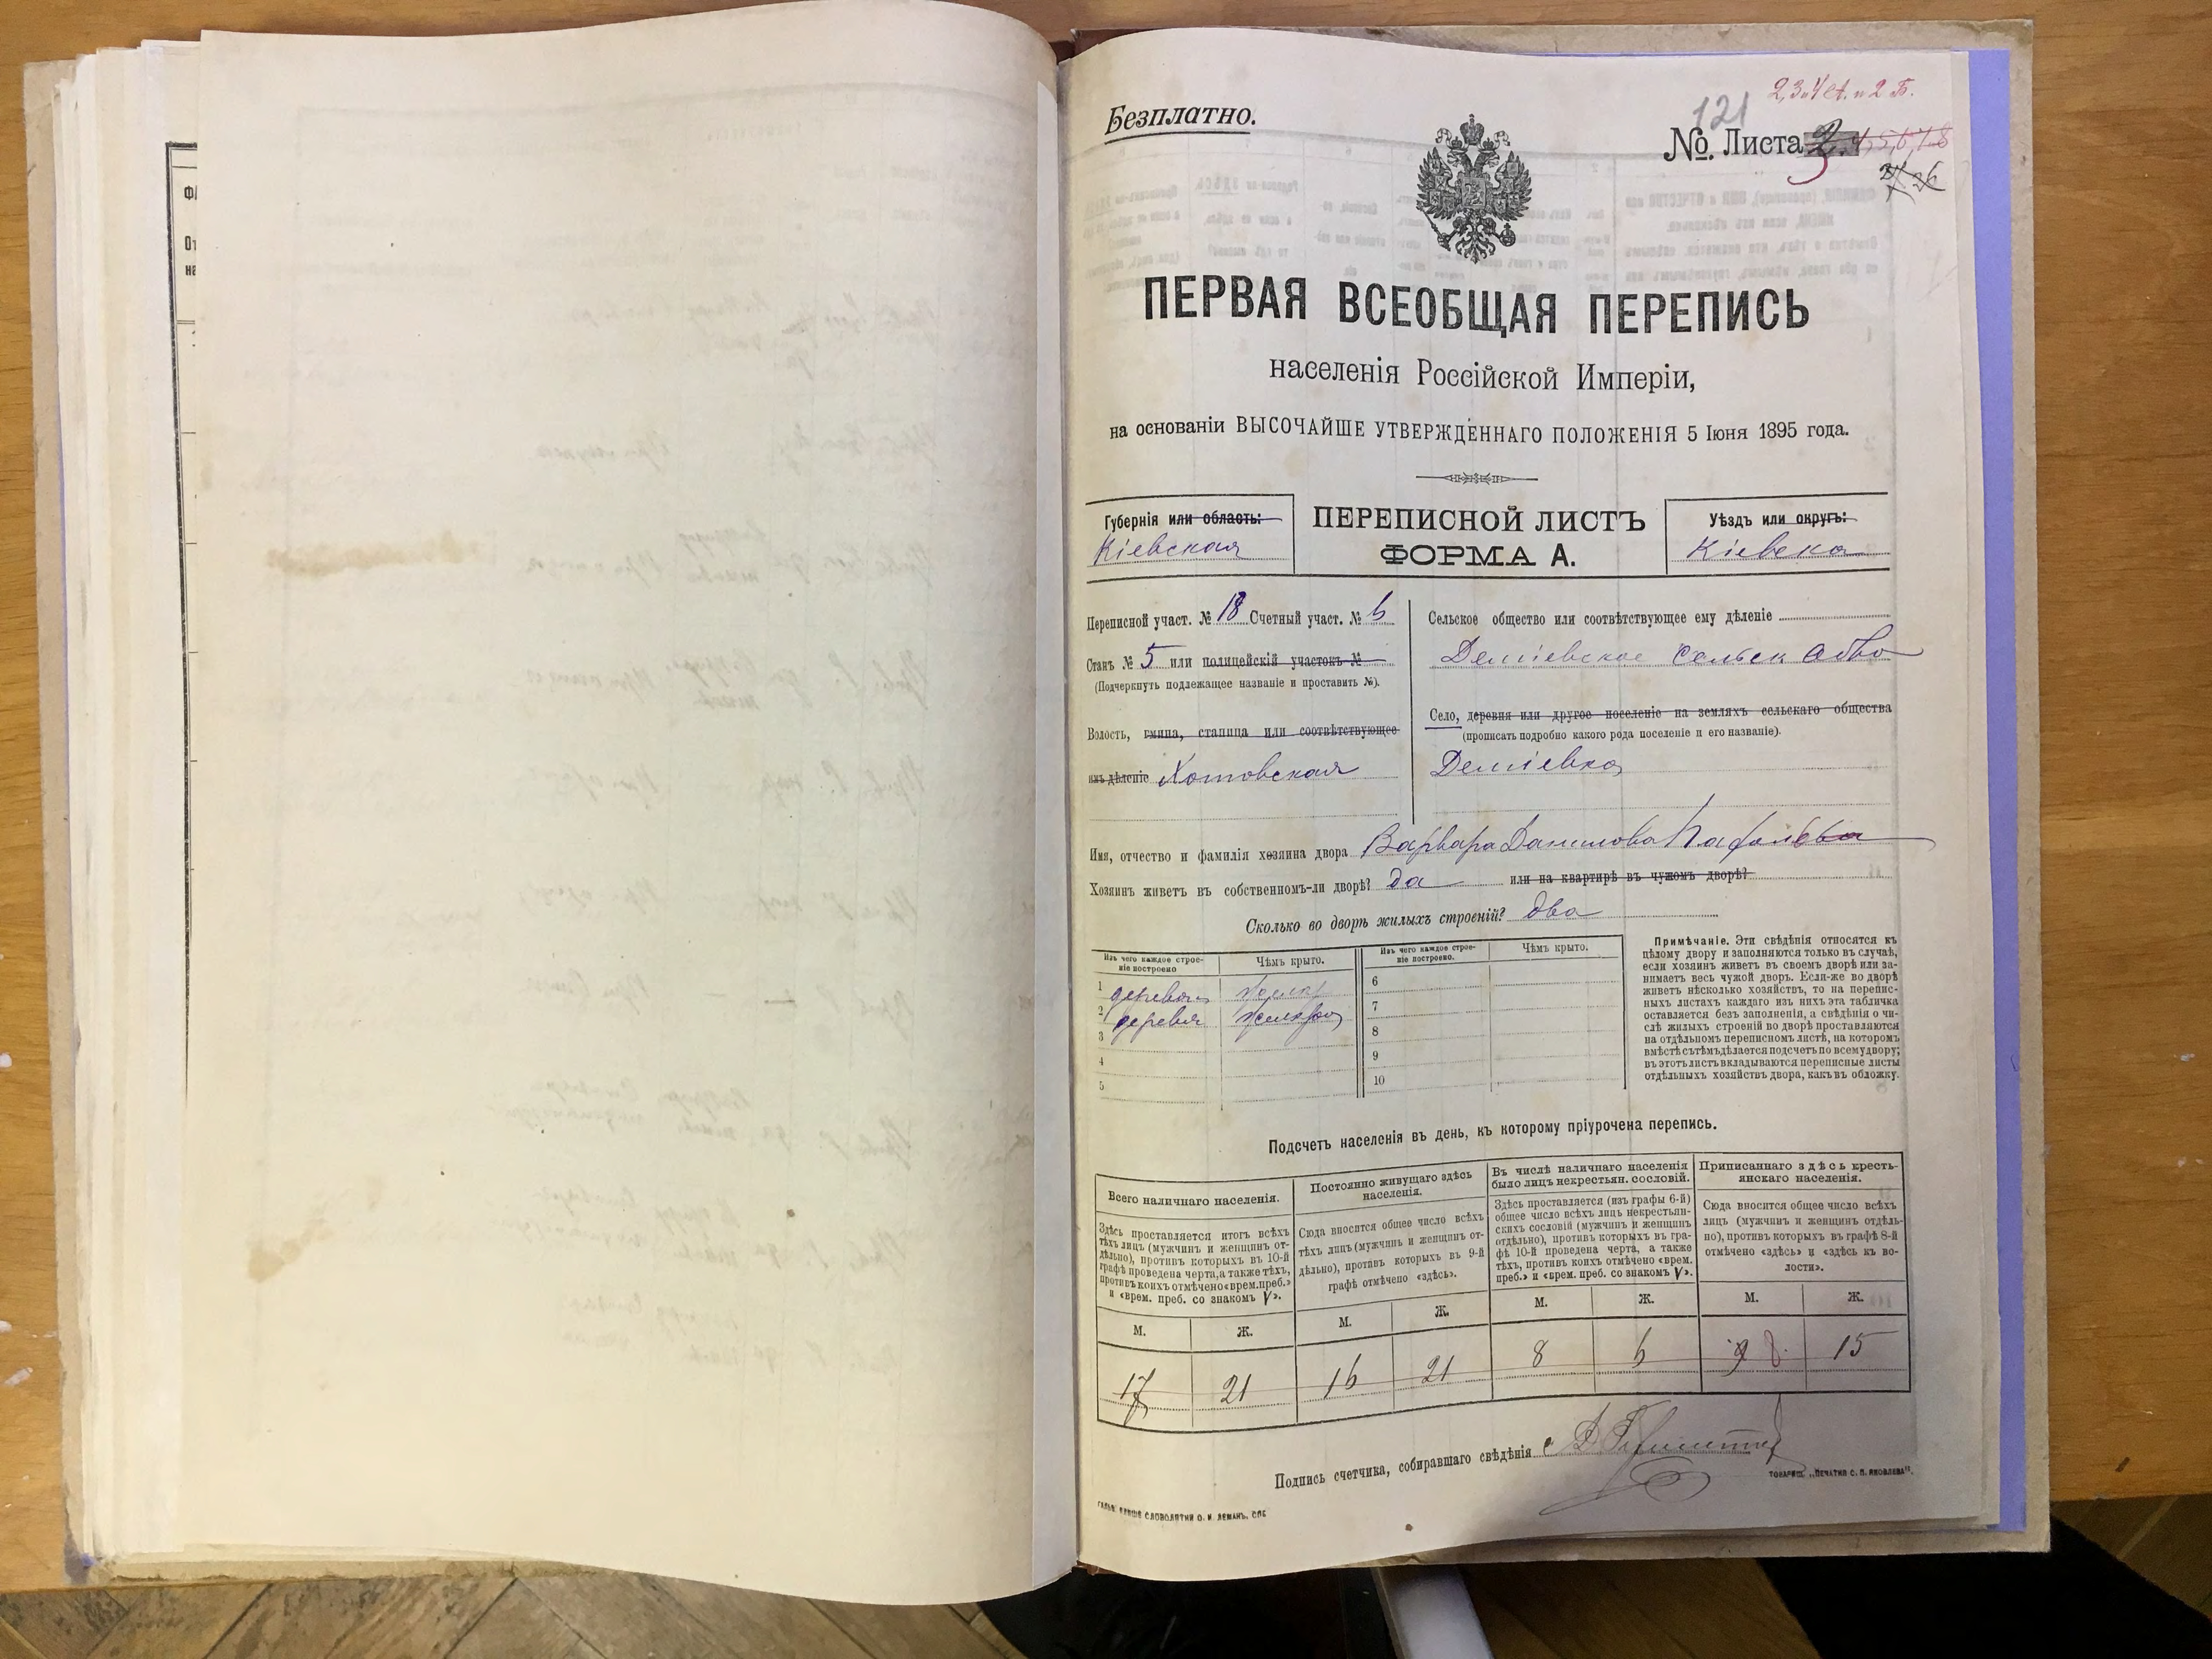 Безплатно.
2,3 и 4 А. и 2 Б.
121
№. Листа 3
ПЕРВАЯ ВСЕОБЩАЯ ПЕРЕПИСЬ
населенія Россійской Имперіи,
на основаніи ВЫСОЧАЙШЕ УТВЕРЖДЕННАГО ПОЛОЖЕНІЯ 5 Іюня 1895 года.
Губернія или область:
Кіевская
ПЕРЕПИСНОЙ ЛИСТЪ
ФОРМА А.
Уѣздъ или округъ:
Кіевска
Переписной участ. № 18 Счетный участ. № 6
Станъ № 5 или полицейскій участокъ №
(Подчеркнуть подлежащее названіе и проставить №).
Волость, гмина, станица или соотвѣтствующее
имъ дѣленіе Хотовская
Сельское общество или соотвѣтствующее ему дѣленіе
Деміевское Сельск Общво
Село, деревня или другое поселеніе на земляхъ сельскаго общества
(прописать подробно какого рода поселеніе и его названіе).
Деміевка
Имя, отчество и фамилія хозяина двора Варвара Данилова
Хозяинъ живетъ въ собственномъ-ли дворѣ? да или на квартирѣ въ чужомъ дворѣ?
Сколько во дворѣ жилыхъ строеній? два
Изъ чего каждое строе-
ніе построено
Чѣмъ крыто.
Изъ чего каждое строе-
ніе построено.
Чѣмъ крыто.
1 деревян
2 деревя
3
4
5
6
7
8
9
10
Примѣчаніе. Эти свѣдѣнія относятся къ
цѣлому двору и заполняются только въ случаѣ,
если хозяинъ живетъ въ своемъ дворѣ или за-
нимаетъ весь чужой дворъ. Если-же во дворѣ
живетъ нѣсколько хозяйствъ, то на перепис-
ныхъ листахъ каждаго изъ нихъ эта табличка
оставляется безъ заполненія, а свѣдѣнія о чи-
слѣ жилыхъ строеній во дворѣ проставляются
на отдѣльномъ переписномъ листѣ, на которомъ
вмѣстѣ съ тѣмъ дѣлается подсчетъ по всему двору;
въ этотъ листъ вкладываются переписные листы
отдѣльныхъ хозяйствъ двора, какъ въ обложку.
Подсчетъ населенія въ день, къ которому пріурочена перепись.
Всего наличнаго населенія.
Здѣсь проставляется итогъ всѣхъ
тѣхъ лицъ (мужчинъ и женщинъ от-
дѣльно), противъ которыхъ въ 10-й
графѣ проведена черта, а также тѣхъ,
противъ коихъ отмѣчено «врем. преб.»
и «врем. преб. со знакомъ V».
Постоянно живущаго здѣсь
населенія.
Сюда вносится общее число всѣхъ
тѣхъ лицъ (мужчинъ и женщинъ от-
дѣльно), противъ которыхъ въ 9-й
графѣ отмѣчено «здѣсь».
Въ числѣ наличнаго населенія
было лицъ некрестьян. сословій.
Здѣсь проставляется (изъ графы 6-й)
общее число всѣхъ лицъ некрестьян-
скихъ сословій (мужчинъ и женщинъ
отдѣльно), противъ которыхъ въ гра-
фѣ 10-й проведена черта, а также
тѣхъ, противъ коихъ отмѣчено «врем.
преб.» и «врем. преб. со знакомъ V».
Приписаннаго здѣсь кресть-
янскаго населенія.
Сюда вносится общее число всѣхъ
лицъ (мужчинъ и женщинъ отдѣль-
но), противъ которыхъ въ графѣ 8-й
отмѣчено «здѣсь» и «здѣсь къ во-
лости».
М. Ж. М. Ж. М. Ж. М. Ж.
17 21 16 21 8 6 9 8 15
Подпись счетчика, собиравшаго свѣдѣнія
СЛОВОЛИТНИ О. И. ЛЕМАНЪ, СПБ
ТОВАРИЩ. „ПЕЧАТНЯ С. П. ЯКОВЛЕВА".